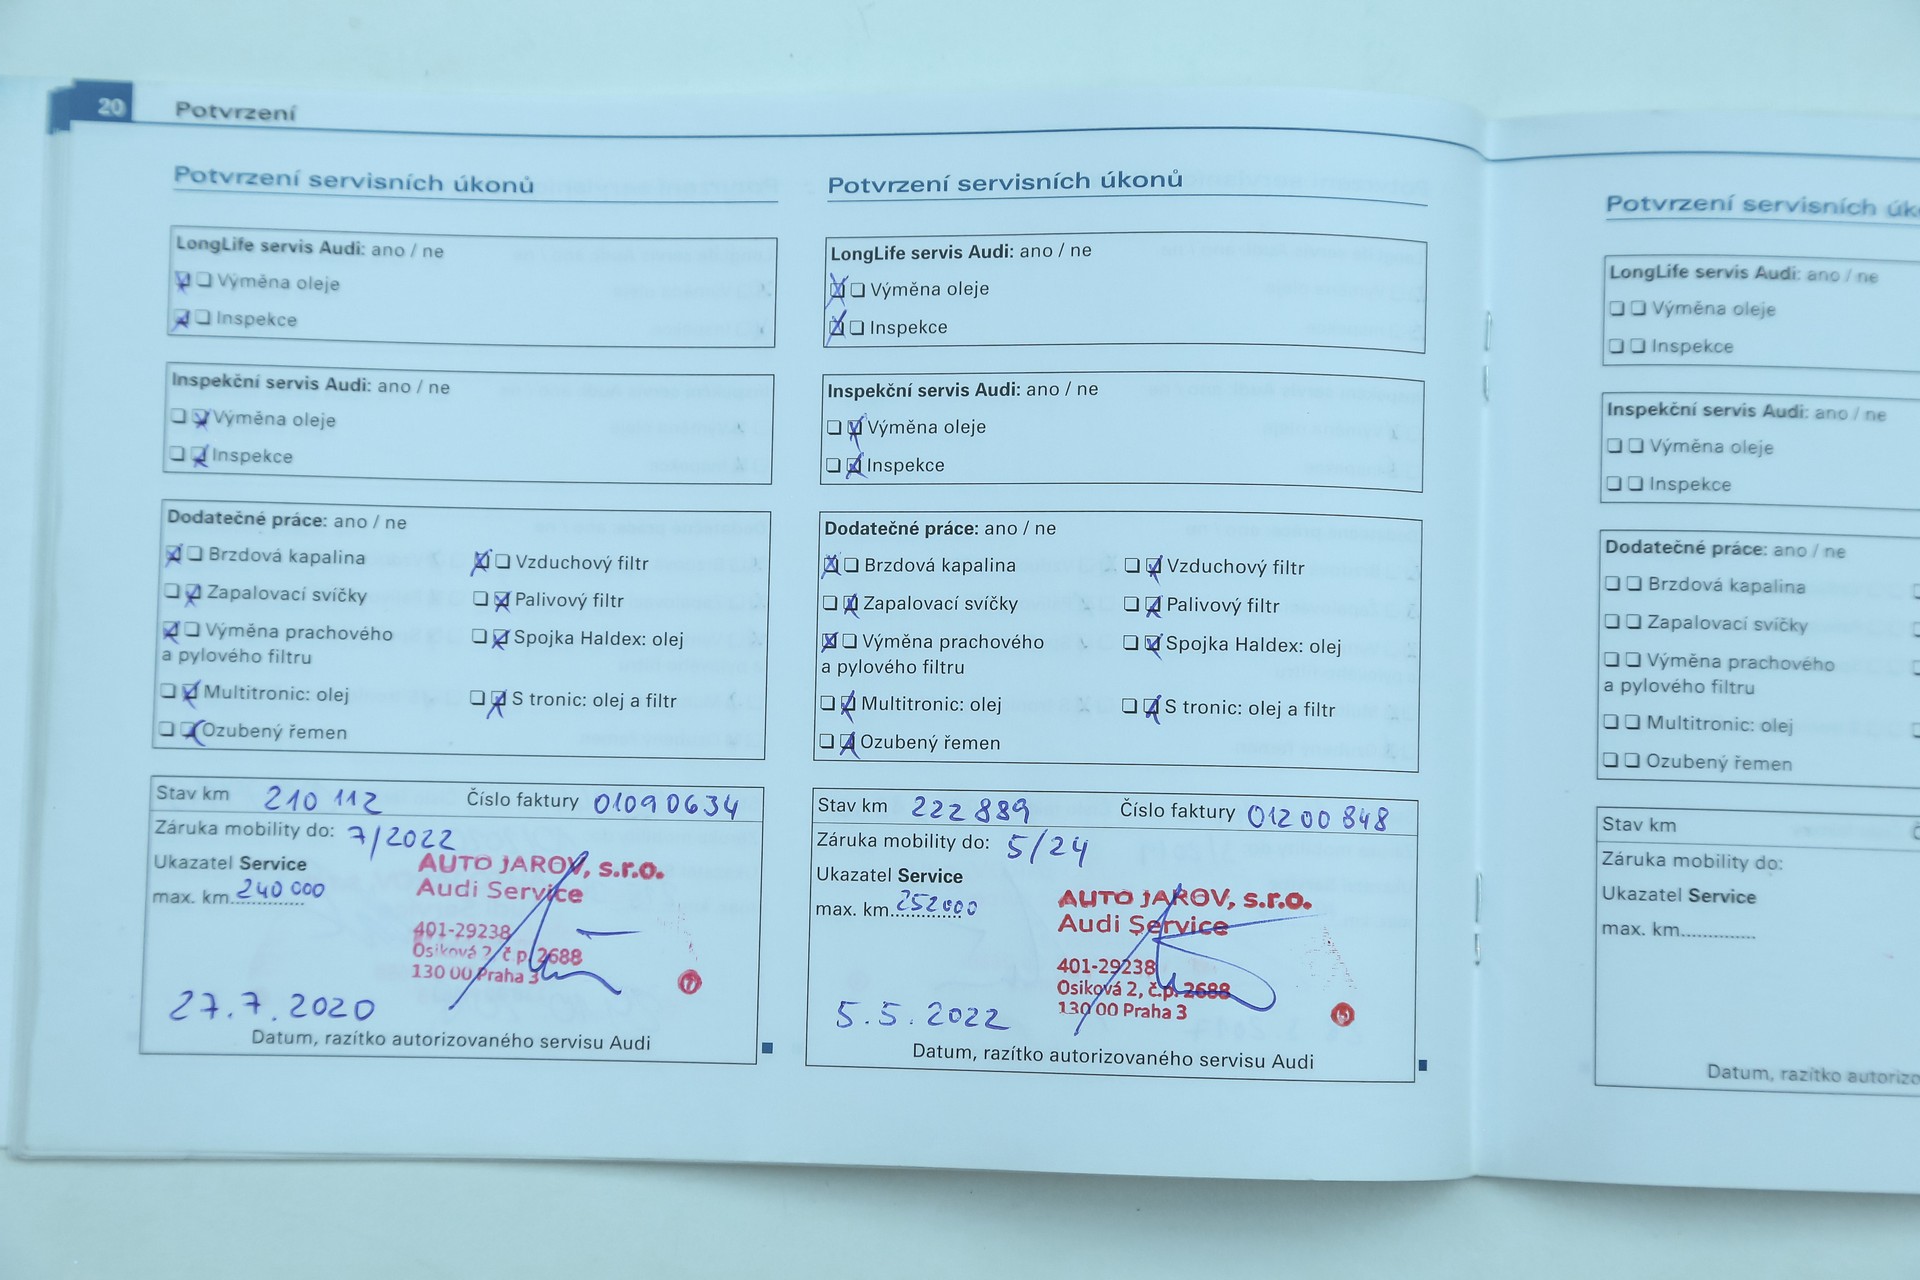 20 Potvrzení
Potvrzení servisních úkonů
LongLife servis Audi: ano / ne
Výměna oleje
Inspekce
Inspekční servis Audi: ano / ne
Výměna oleje
Inspekce
Dodatečné práce: ano / ne
Brzdová kapalina
Vzduchový filtr
Zapalovací svíčky
Palivový filtr
Výměna prachového
a pylového filtru
Spojka Haldex: olej
Multitronic: olej
S tronic: olej a filtr
Ozubený řemen
Stav km 210 112 Číslo faktury 01090634
Záruka mobility do: 7/2022
Ukazatel Service
max. km 240 000
AUTO JAROV, s.r.o.
Audi Service
401-29238
Osiková 2, č.p. 2688
130 00 Praha 3
7
27.7.2020
Datum, razítko autorizovaného servisu Audi
Potvrzení servisních úkonů
LongLife servis Audi: ano / ne
Výměna oleje
Inspekce
Inspekční servis Audi: ano / ne
Výměna oleje
Inspekce
Dodatečné práce: ano / ne
Brzdová kapalina
Vzduchový filtr
Zapalovací svíčky
Palivový filtr
Výměna prachového
a pylového filtru
Spojka Haldex: olej
Multitronic: olej
S tronic: olej a filtr
Ozubený řemen
Stav km 222 889 Číslo faktury 01200848
Záruka mobility do: 5/24
Ukazatel Service
max. km 252000
AUTO JAROV, s.r.o.
Audi Service
401-29238
Osiková 2, č.p. 2688
130 00 Praha 3
5.5.2022
Datum, razítko autorizovaného servisu Audi
Potvrzení servisních úk
LongLife servis Audi: ano / ne
Výměna oleje
Inspekce
Inspekční servis Audi: ano / ne
Výměna oleje
Inspekce
Dodatečné práce: ano / ne
Brzdová kapalina
Zapalovací svíčky
Výměna prachového
a pylového filtru
Multitronic: olej
Ozubený řemen
Stav km
Záruka mobility do:
Ukazatel Service
max. km
Datum, razítko autorizo